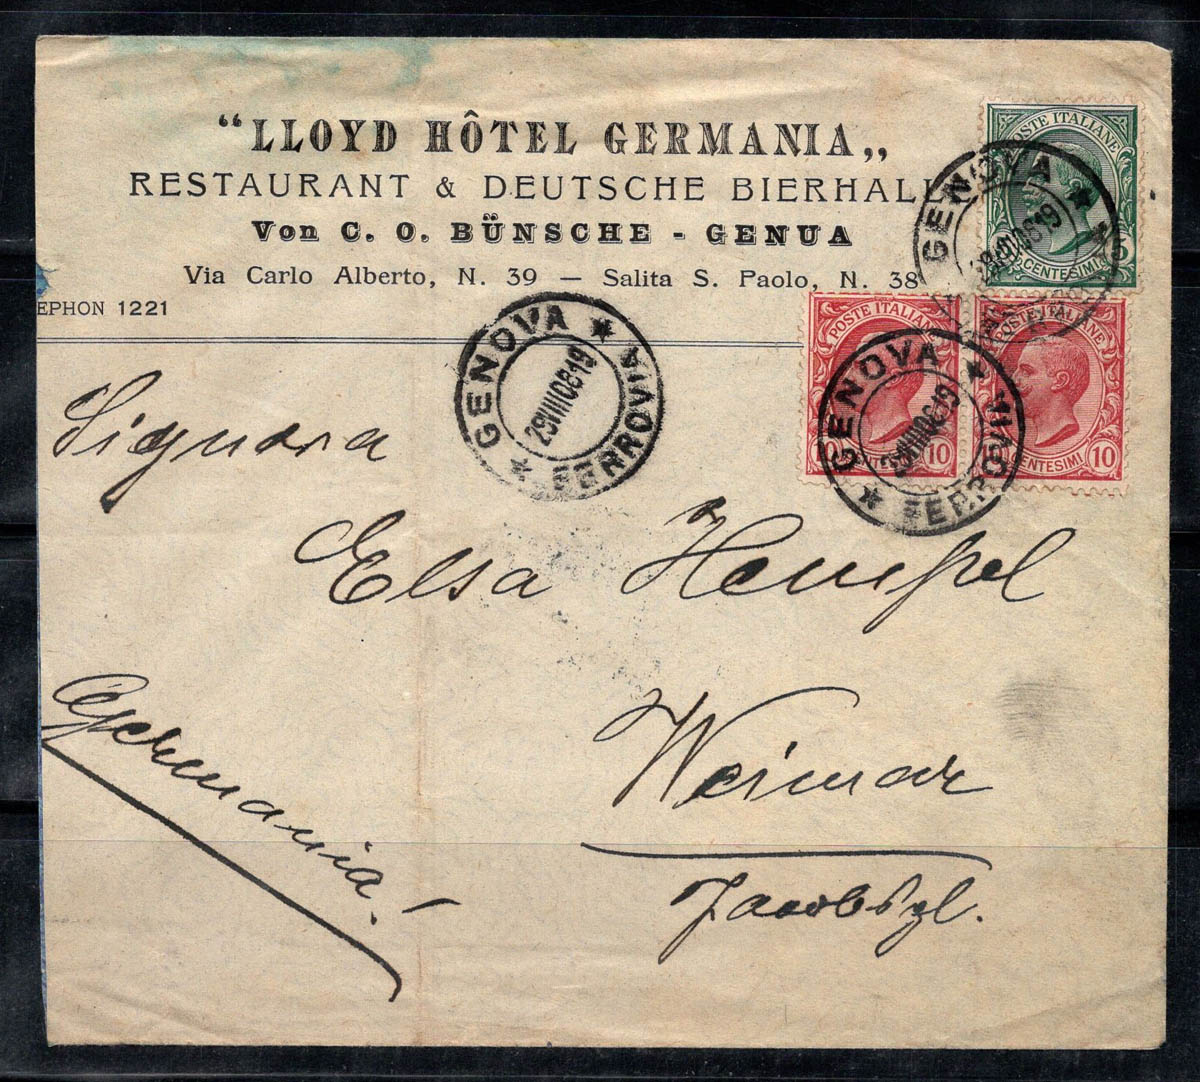 “LLOYD HÔTEL GERMANIA„
RESTAURANT & DEUTSCHE BIERHALL
Von C. O. BÜNSCHE - GENUA
Via Carlo Alberto, N. 39 — Salita S. Paolo, N. 38
EPHON 1221
POSTE ITALIANE
5
CENTESIMI
GENOVA
08 19
POSTE ITALIANE
10 CENTESIMI 10
POSTE ITALIANE
CENTESIMI 10
GENOVA FERROVIA
29 VIII 08 19
GENOVA FERROVIA
29 VIII 08 19
Signora
Elsa Hempel
Germania!
Weimar
Jacobsgl.